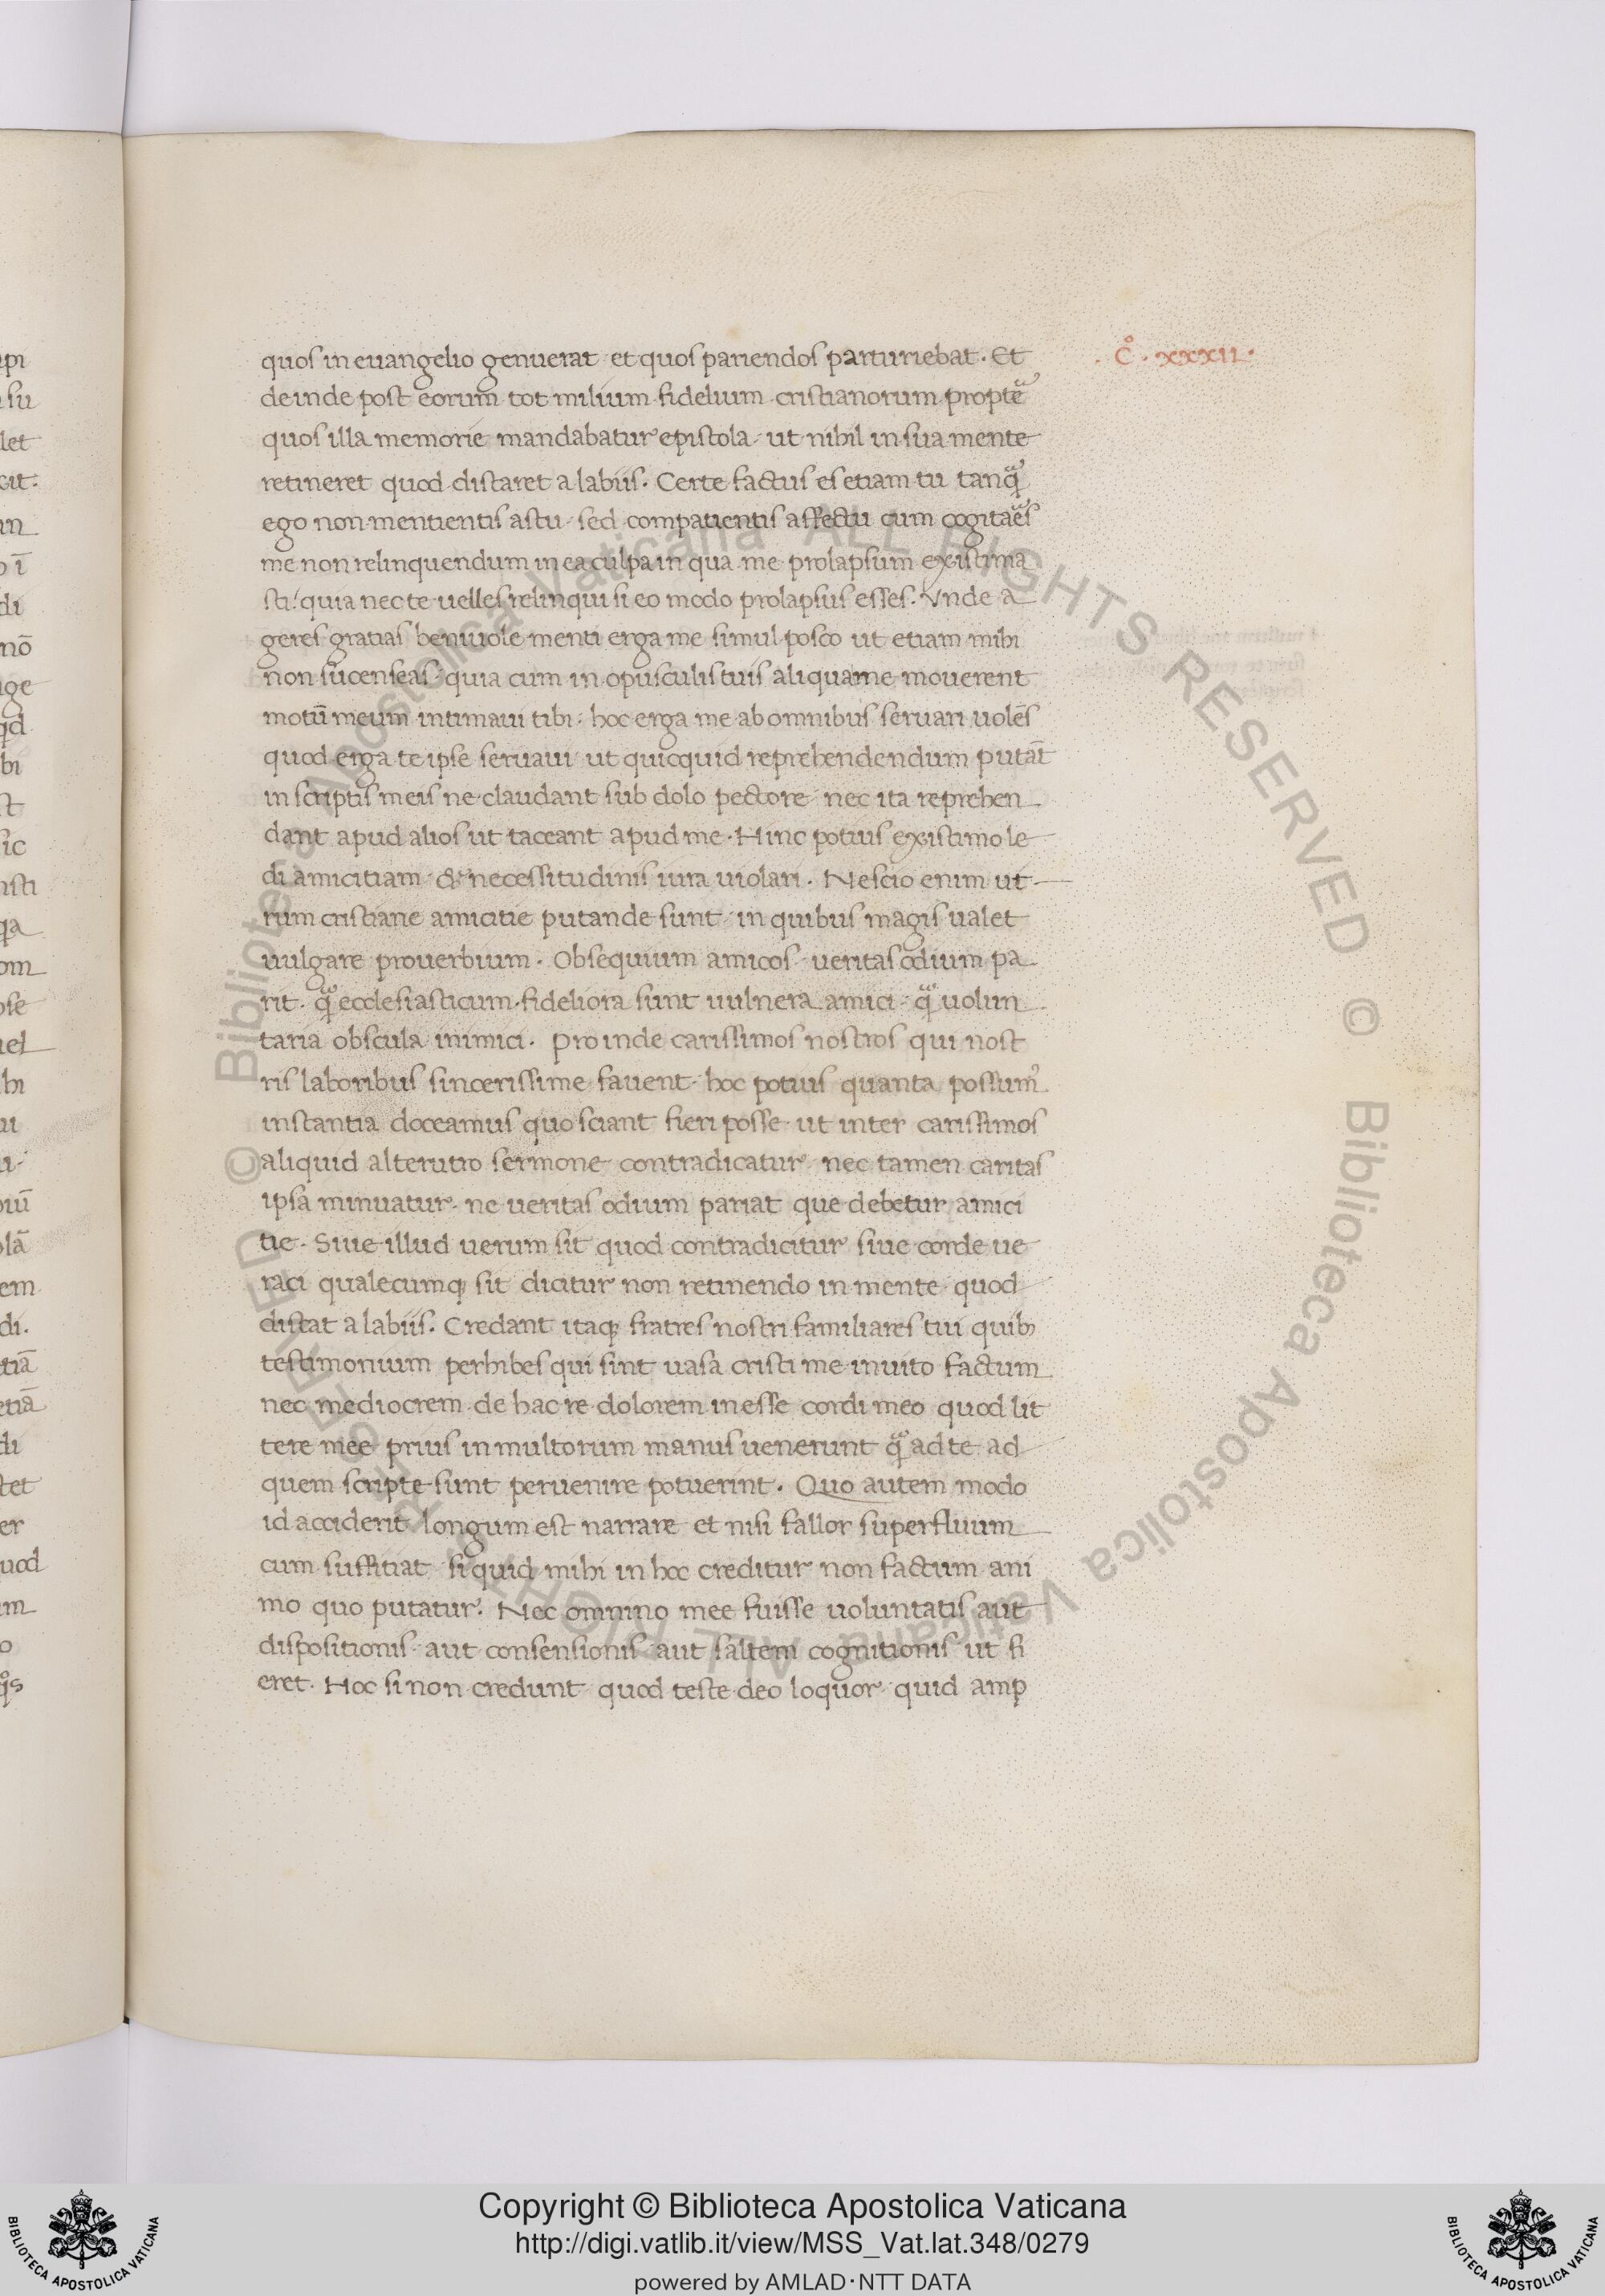 quos in euangelio genuerat et quos pariendos parturiebat. Et
.C°. xxxii.
deinde post eorum tot milium fidelium cristianorum propte
quos illa memorie mandabatur epistola ut nihil in sua mente
retineret quod distaret a labiis. Certe factus es etiam tu tanqͣ
ego non mentientis astu sed compatientis affectu cum cogitaes
me non relinquendum in ea culpa in qua me prolapsum existima
sti quia nec te uelles relinqui si eo modo prolapsus esses. Vnde a
geres gratias beniuole menti erga me simul posco ut etiam mihi
non sucenseas quia cum in opusculis tuis aliqua me mouerent
motū meum intimaui tibi hoc erga me ab omnibus seruari uolēs
quod erga te ipse seruaui ut quicquid reprehendendum putāt
in scriptis meis ne claudant sub dolo pectore nec ita reprehen
dant apud alios ut taceant apud me. Hinc potius existimo le
di amicitiam & necessitudinis iura uiolari. Nescio enim ut
rum cristiane amicitie putande sunt in quibus magis ualet
uulgare prouerbium. Obsequium amicos ueritas odium pa
rit. qͣ ecclesiasticum fideliora sunt uulnera amici qͣ uolun
taria obscula inimici. Proinde carissimos nostros qui nost
ris laboribus sincerissime fauent hoc potius quanta possum'
instantia doceamus quo sciant fieri posse ut inter carissimos
aliquid alterutro sermone contradicatur nec tamen caritas
ipsa minuatur ne ueritas odium pariat que debetur amici
tie. Siue illud uerum sit quod contradicitur siue corde ue
raci qualecumqꝫ sit dicitur non retinendo in mente quod
distat a labiis. Credant itaqꝫ fratres nostri familiares tui quibꝫ
testimonium perhibes qui sint uasa cristi me inuito factum
nec mediocrem de hac re dolorem inesse cordi meo quod lit
tere mee prius in multorum manus uenerunt qͣ ad te ad
quem scripte sunt peruenire potuerint. Quo autem modo
id acciderit longum est narrare et nisi fallor superfluum
cum suffitiat si quid mihi in hoc creditur non factum ani
mo quo putatur. Nec omnino mee fuisse uoluntatis aut
dispositionis aut consensionis aut saltem cognitionis ut fi
eret. Hoc si non credunt quod teste deo loquor quid amp
Copyright © Biblioteca Apostolica Vaticana
http://digi.vatlib.it/view/MSS_Vat.lat.348/0279
powered by AMLAD·NTT DATA
BIBLIOTECA APOSTOLICA VATICANA
BIBLIOTECA APOSTOLICA VATICANA
© Biblioteca Apostolica Vaticana ALL RIGHTS RESERVED © Biblioteca Apostolica Vaticana ALL RIGHTS RESERVED